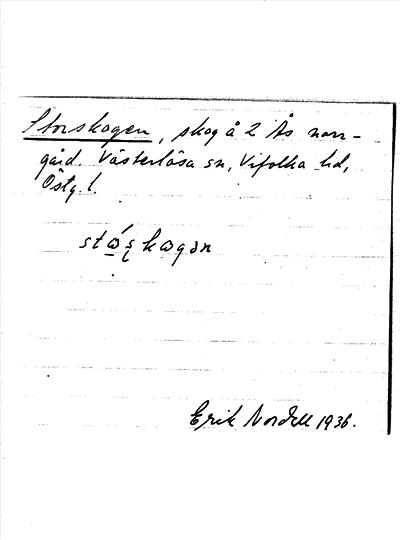 Storskogen, skog å 2 Ås norr-
gård. Västerlösa sn, Vifolka hd,
Östg. l.
Erik Nordell 1936.